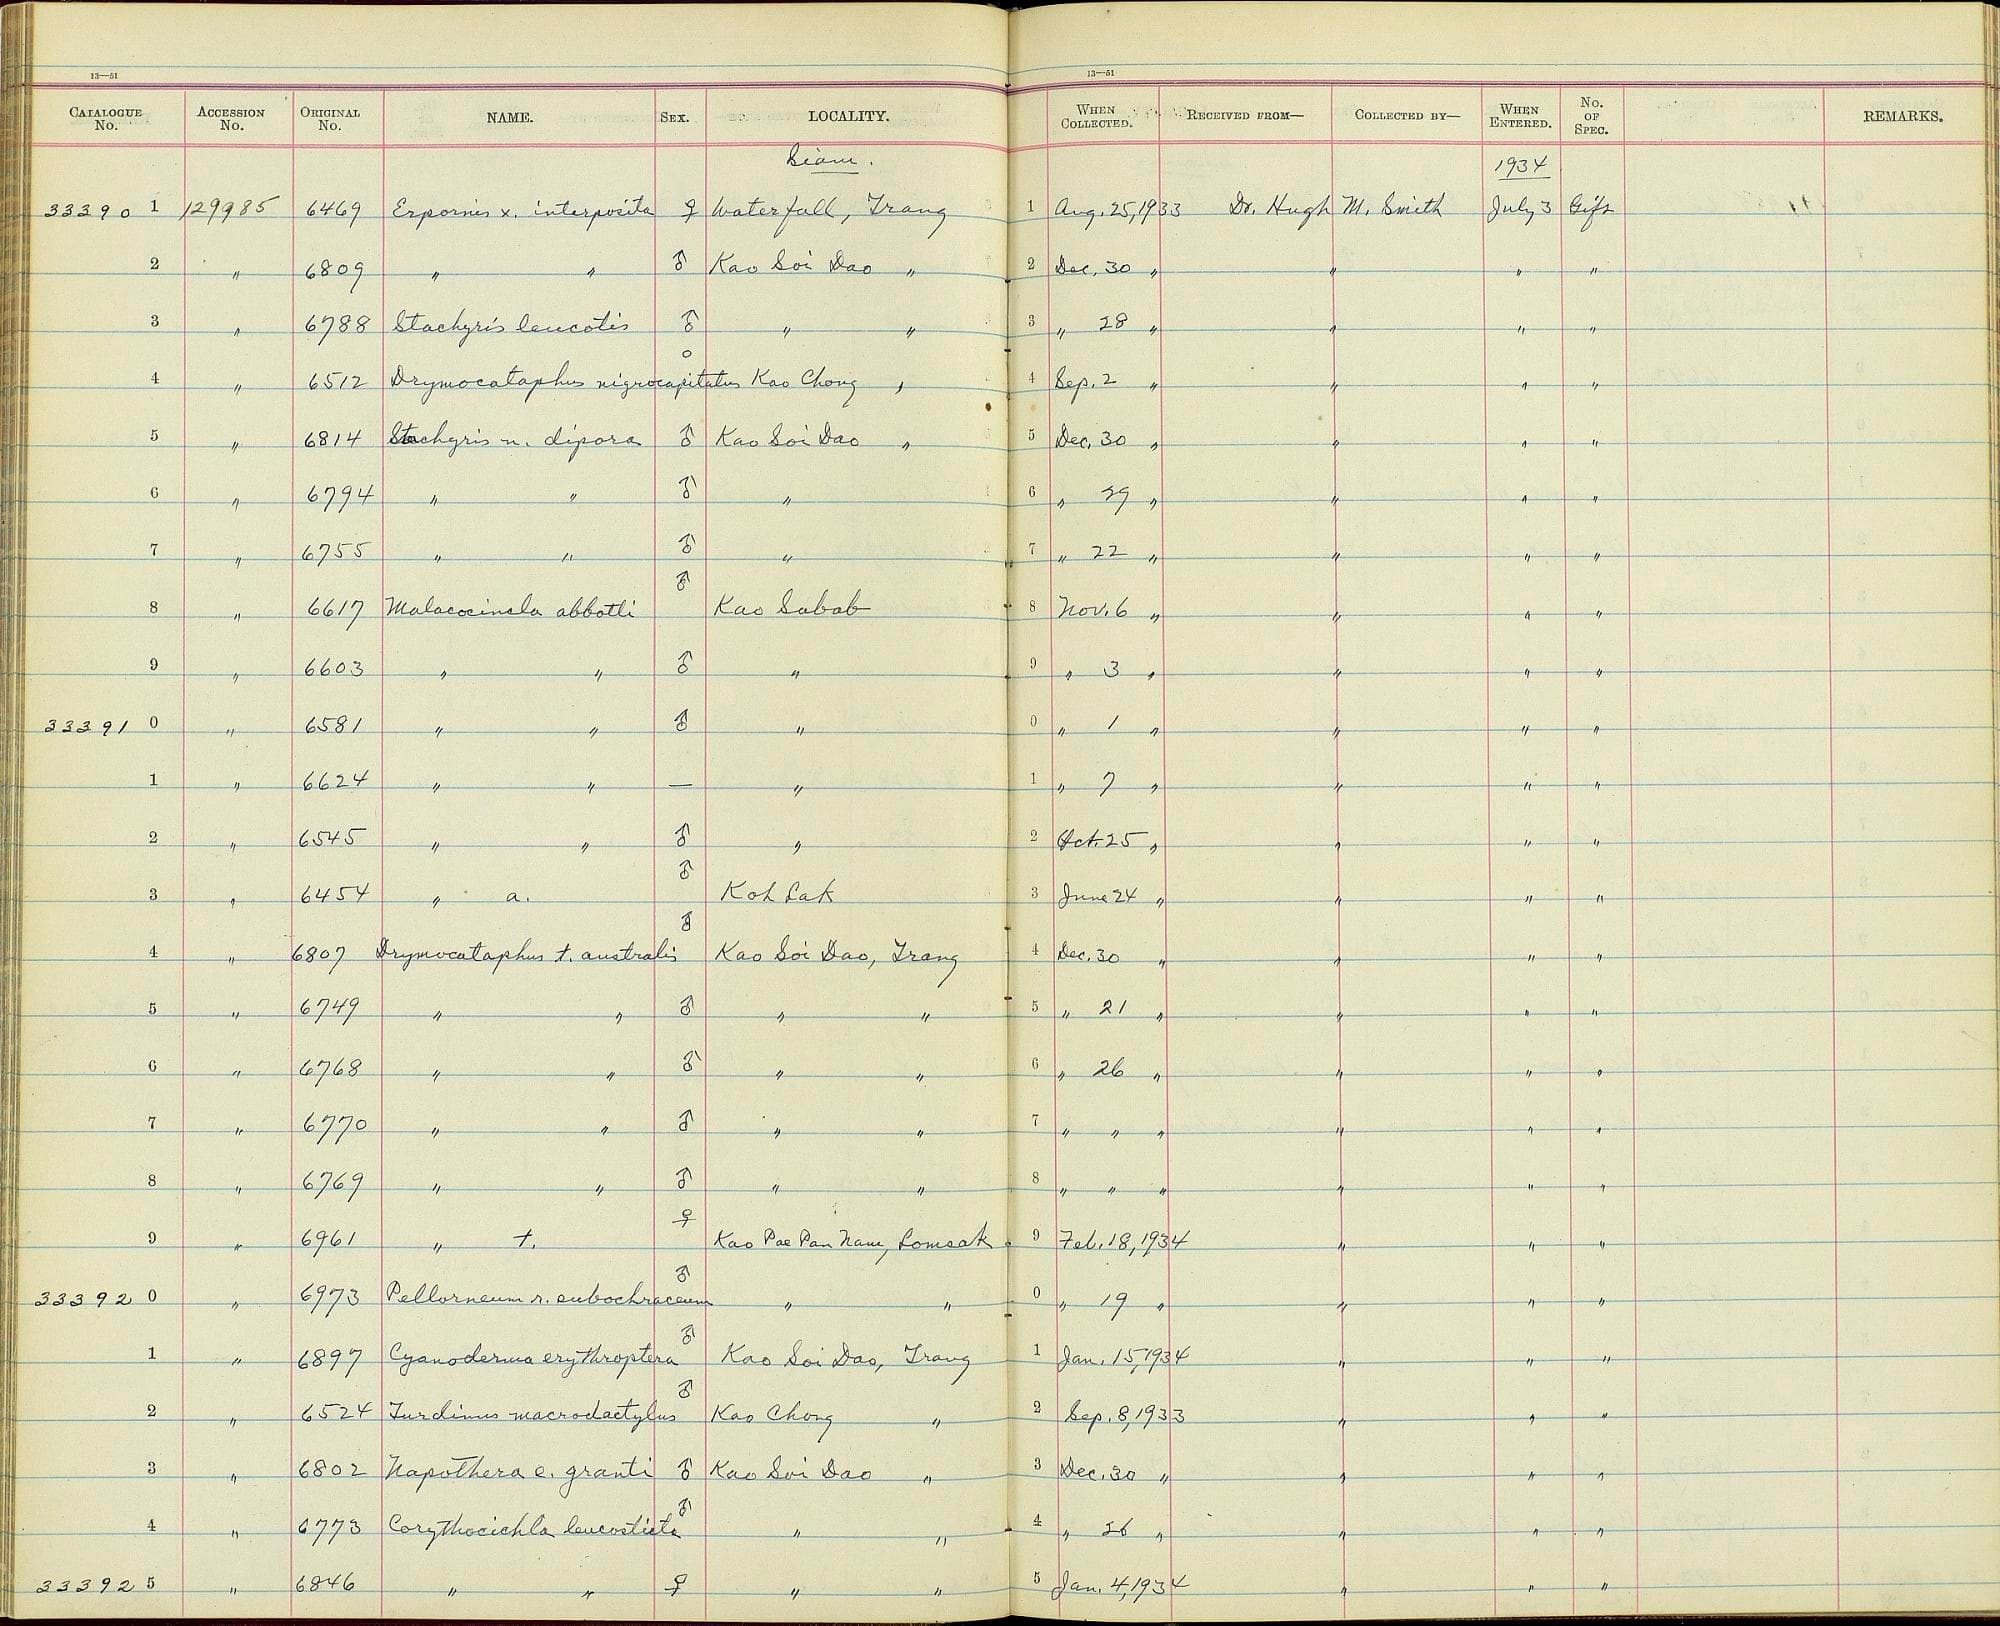 13—51 13—51
CATALOGUE No. ACCESSION No. ORIGINAL No. NAME. SEX. LOCALITY. WHEN COLLECTED. RECEIVED FROM— COLLECTED BY— WHEN ENTERED. No. OF SPEC. REMARKS.
Siam. 1934
33390 1 129985 6469 Erpornis x. interposita ♀ Waterfall, Trang 1 Aug. 25, 1933 Dr. Hugh M. Smith July 3 Gift
2 " 6809 " " ♂ Kao Soi Dao " 2 Dec. 30 " " " "
3 " 6788 Stachyris leucotis ♂ " " 3 " 28 " " " "
4 " 6512 Drymocataphus nigrocapitatus o Kao Chong " 4 Sep. 2 " " " "
5 " 6814 Stachyris n. dipora ♂ Kao Soi Dao " 5 Dec. 30 " " " "
6 " 6794 " " ♂ " 6 " 29 " " " "
7 " 6755 " " ♂ " 7 " 22 " " " "
8 " 6617 Malacocincla abbotti ♂ Kao Sabab 8 Nov. 6 " " " "
9 " 6603 " " ♂ " 9 " 3 " " " "
33391 0 " 6581 " " ♂ " 0 " 1 " " " "
1 " 6624 " " — " 1 " 7 " " " "
2 " 6545 " " ♂ " 2 Oct. 25 " " " "
3 " 6454 " a. ♂ Koh Lak 3 June 24 " " " "
4 " 6807 Drymocataphus t. australis ♂ Kao Soi Dao, Trang 4 Dec. 30 " " " "
5 " 6749 " " ♂ " " 5 " 21 " " " "
6 " 6768 " " ♂ " " 6 " 26 " " " "
7 " 6770 " " ♂ " " 7 " " " " " "
8 " 6769 " " ♂ " " 8 " " " " " "
9 " 6961 " t. ♀ Kao Pae Pan Nam, Lomsak 9 Feb. 18, 1934 " " "
33392 0 " 6973 Pellorneum r. subochraceum ♂ " " 0 " 19 " " " "
1 " 6897 Cyanoderma erythroptera ♂ Kao Soi Dao, Trang 1 Jan. 15, 1934 " " "
2 " 6524 Turdinus macrodactylus ♂ Kao Chong " 2 Sep. 8, 1933 " " "
3 " 6802 Napothera e. granti ♂ Kao Soi Dao " 3 Dec. 30 " " " "
4 " 6773 Corythocichla leucosticta ♂ " " 4 " 26 " " " "
33392 5 " 6846 " " ♀ " " 5 Jan. 4, 1934 " " "